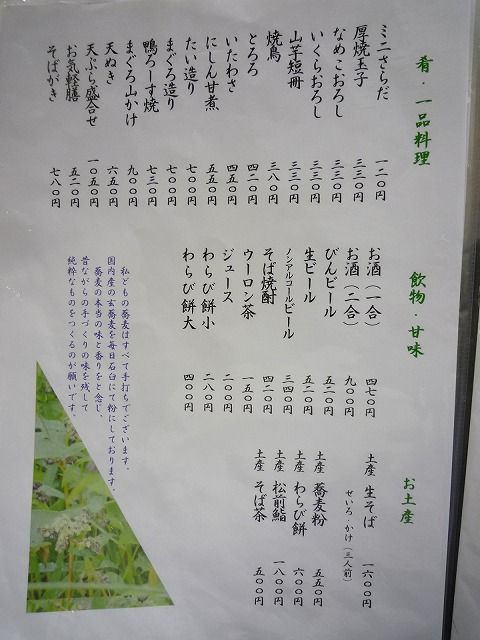 肴・一品料理
ミニさらだ 一二〇円
厚焼玉子 三三〇円
なめこおろし 三三〇円
いくらおろし 三三〇円
山芋短冊 三三〇円
焼鳥 三八〇円
とろろ 四二〇円
いたわさ 四五〇円
にしん甘煮 五五〇円
たい造り 七〇〇円
まぐろ造り 七〇〇円
鴨ろーす焼 七三〇円
まぐろ山かけ 九〇〇円
天ぬき 六五〇円
天ぷら盛合せ 一〇五〇円
お気軽膳 五二〇円
そばがき 七八〇円
飲物・甘味
お酒（一合） 四七〇円
お酒（二合） 九〇〇円
びんビール 五二〇円
生ビール 五二〇円
ノンアルコールビール 三四〇円
そば焼酎 四二〇円
ウーロン茶 一五〇円
ジュース 二〇〇円
わらび餅小 二八〇円
わらび餅大 四〇〇円
お土産
土産 生そば 一六〇〇円
せいろ・かけ（三人前）
土産 蕎麦粉 五五〇円
土産 わらび餅 六〇〇円
土産 松前鮨 一八〇〇円
土産 そば茶 五〇〇円
私どもの蕎麦はすべて手打ちでございます。
国内産の玄蕎麦を毎日石臼にて粉にしております。
蕎麦の本当の味と香りをと念じ、
昔ながらの手づくりの味を残して
純粋なものをつくるのが願いです。